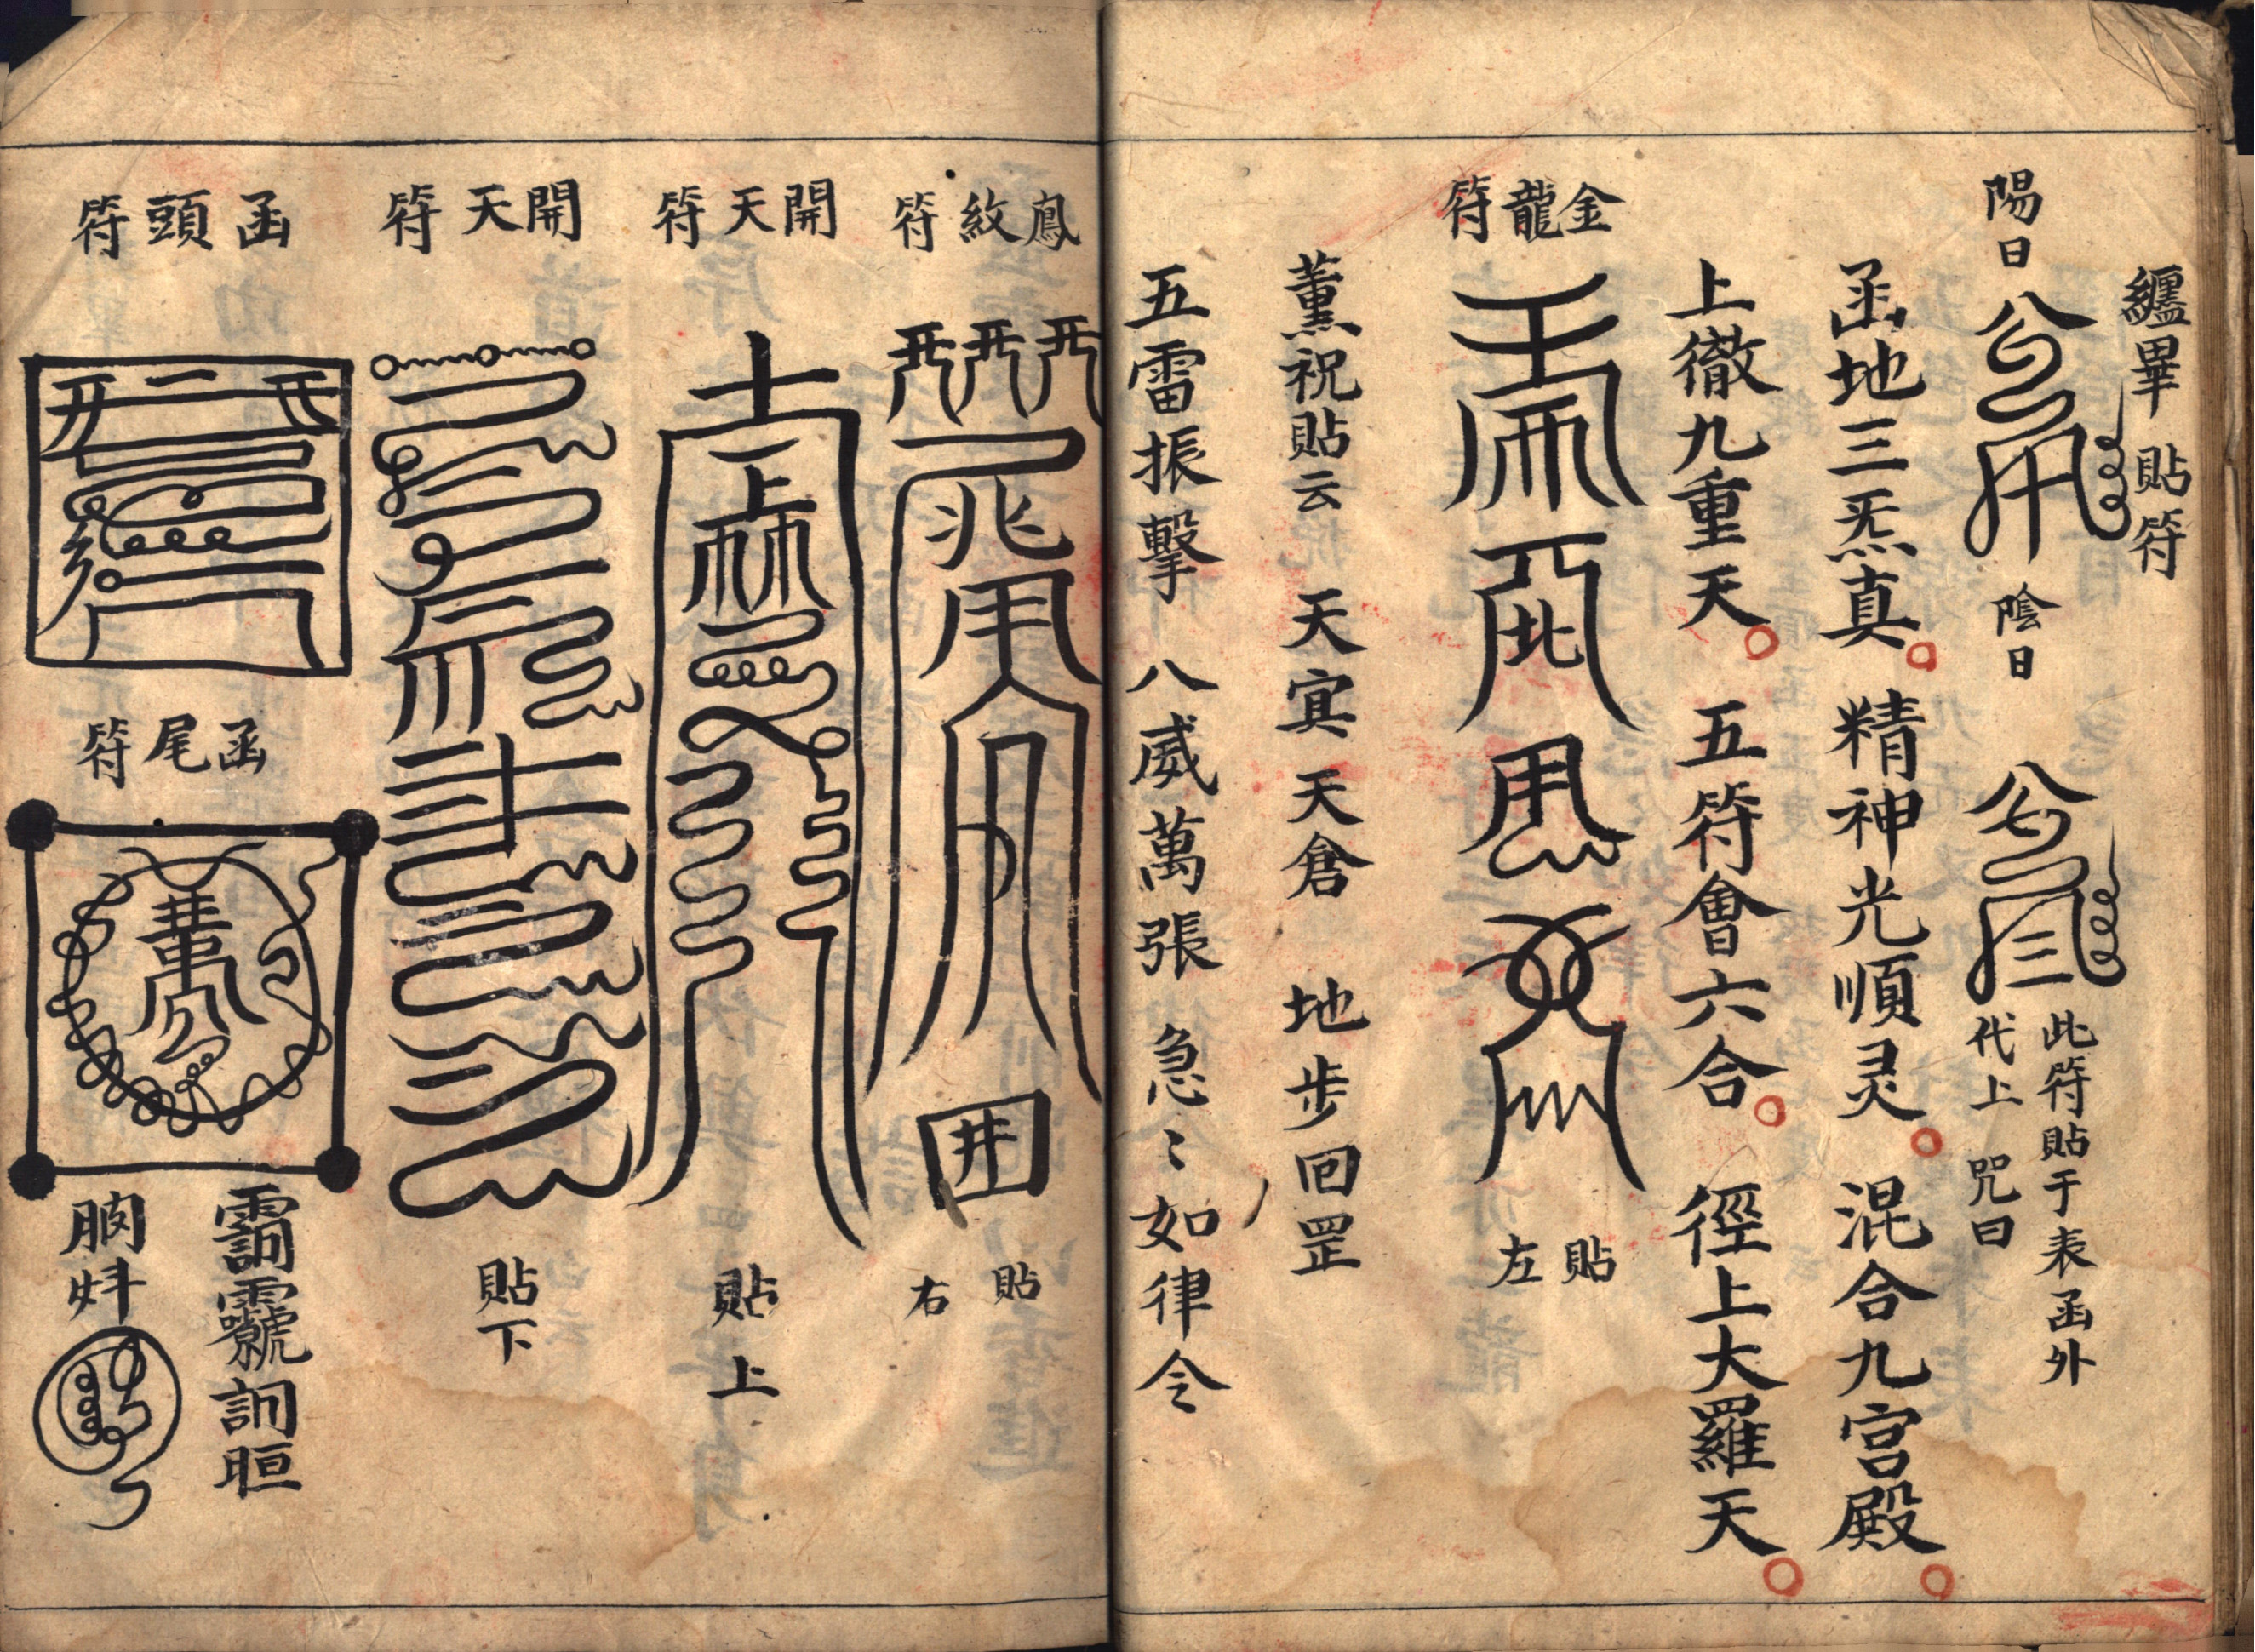 纏畢 貼符
陽日
陰日
此符貼于表函外
代上 咒曰
函地三炁真。精神光順灵。混合九宮殿。
上徹九重天。五符會六合。徑上大羅天。
金龍符
貼左
薰祝貼云 天寅天倉 地步回罡
五雷振擊 八威萬張 急〻如律令
鳳紋符
貼右
開天符
貼上
開天符
貼下
函頭符
函尾符